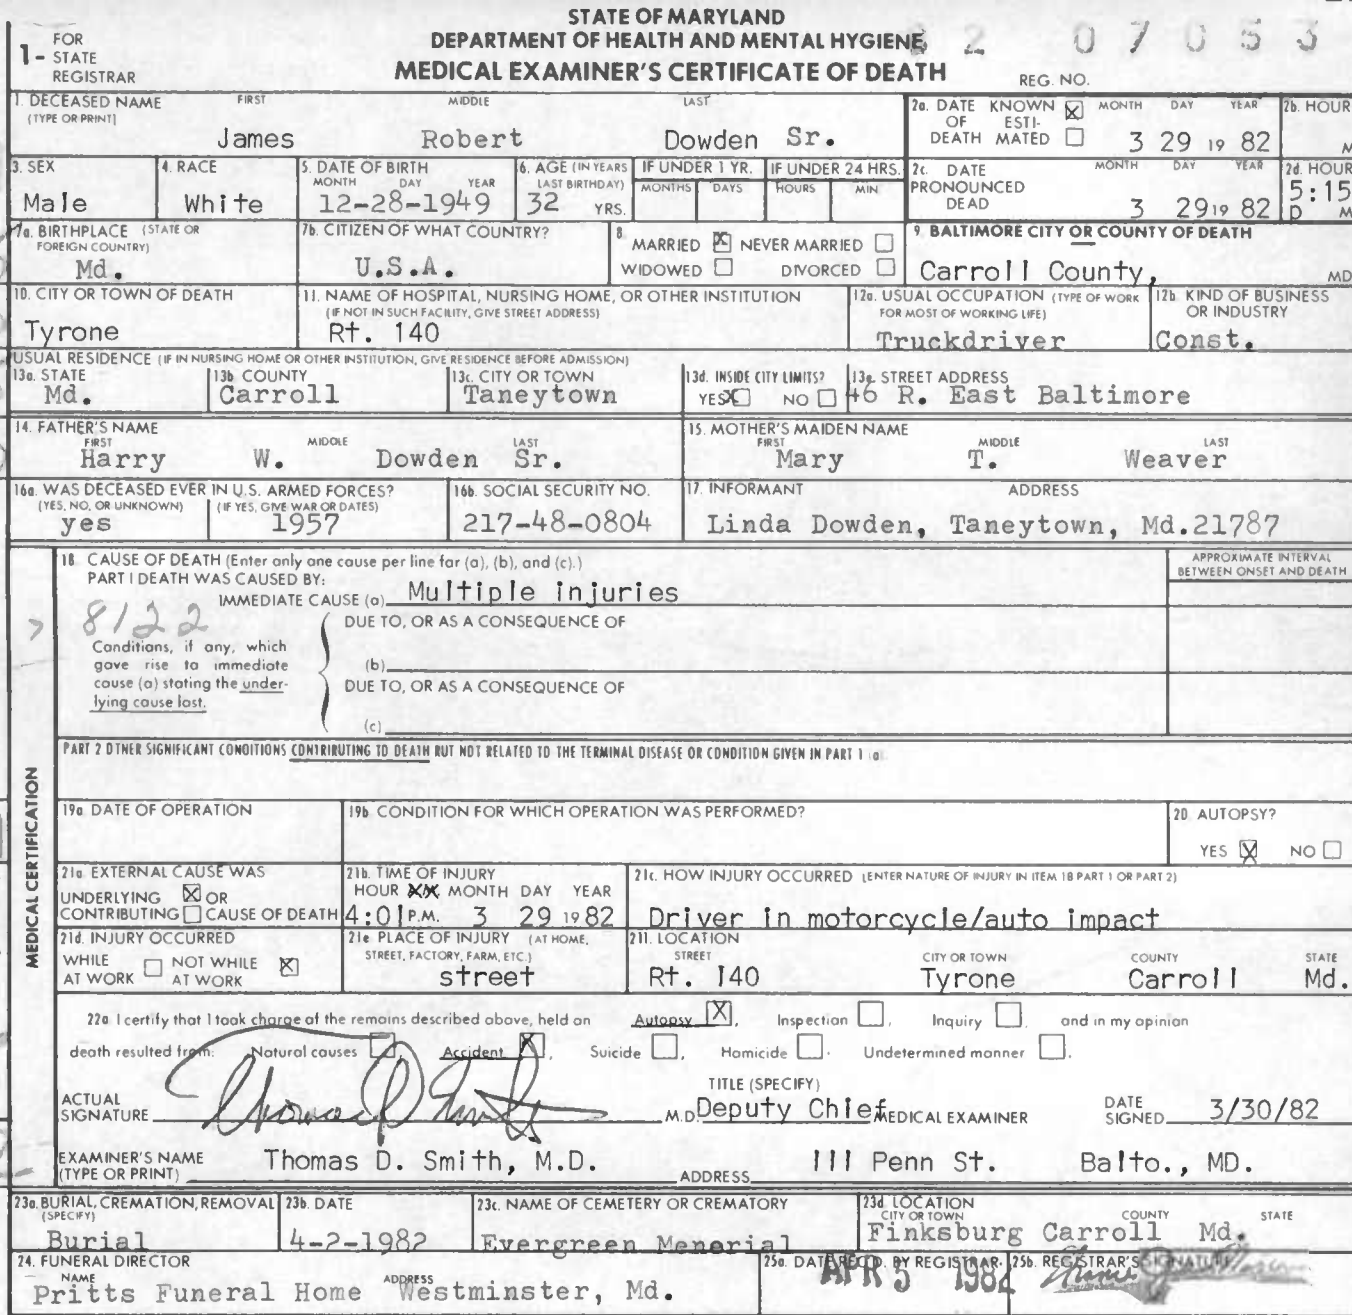 STATE OF MARYLAND
DEPARTMENT OF HEALTH AND MENTAL HYGIENE
MEDICAL EXAMINER'S CERTIFICATE OF DEATH
1- FOR STATE REGISTRAR
2 07053
REG. NO.
1. DECEASED NAME (TYPE OR PRINT) FIRST MIDDLE LAST
James Robert Dowden Sr.
2a. DATE OF DEATH KNOWN X ESTIMATED MONTH DAY YEAR
3 29 19 82
2b. HOUR
M
3. SEX
Male
4. RACE
White
5. DATE OF BIRTH MONTH DAY YEAR
12-28-1949
6. AGE (IN YEARS LAST BIRTHDAY)
32 YRS.
IF UNDER 1 YR. MONTHS DAYS
IF UNDER 24 HRS. HOURS MIN
2c. DATE PRONOUNCED DEAD MONTH DAY YEAR
3 29 19 82
2d. HOUR
5:15
P M
7a. BIRTHPLACE (STATE OR FOREIGN COUNTRY)
Md.
7b. CITIZEN OF WHAT COUNTRY?
U.S.A.
8. MARRIED X NEVER MARRIED
WIDOWED DIVORCED
9. BALTIMORE CITY OR COUNTY OF DEATH
Carroll County, MD
10. CITY OR TOWN OF DEATH
Tyrone
11. NAME OF HOSPITAL, NURSING HOME, OR OTHER INSTITUTION
(IF NOT IN SUCH FACILITY, GIVE STREET ADDRESS)
Rt. 140
12a. USUAL OCCUPATION (TYPE OF WORK FOR MOST OF WORKING LIFE)
Truckdriver
12b. KIND OF BUSINESS OR INDUSTRY
Const.
USUAL RESIDENCE (IF IN NURSING HOME OR OTHER INSTITUTION, GIVE RESIDENCE BEFORE ADMISSION)
13a. STATE
Md.
13b. COUNTY
Carroll
13c. CITY OR TOWN
Taneytown
13d. INSIDE CITY LIMITS?
YES X NO
13e. STREET ADDRESS
46 R. East Baltimore
14. FATHER'S NAME FIRST MIDDLE LAST
Harry W. Dowden Sr.
15. MOTHER'S MAIDEN NAME FIRST MIDDLE LAST
Mary T. Weaver
16a. WAS DECEASED EVER IN U.S. ARMED FORCES?
(YES, NO, OR UNKNOWN) (IF YES, GIVE WAR OR DATES)
yes 1957
16b. SOCIAL SECURITY NO.
217-48-0804
17. INFORMANT ADDRESS
Linda Dowden, Taneytown, Md.21787
MEDICAL CERTIFICATION
18. CAUSE OF DEATH (Enter only one cause per line for (a), (b), and (c).)
PART I DEATH WAS CAUSED BY:
IMMEDIATE CAUSE (a) Multiple injuries
APPROXIMATE INTERVAL BETWEEN ONSET AND DEATH
8122
Conditions, if any, which gave rise to immediate cause (a) stating the underlying cause last.
DUE TO, OR AS A CONSEQUENCE OF
(b)
DUE TO, OR AS A CONSEQUENCE OF
(c)
PART 2 OTHER SIGNIFICANT CONDITIONS CONTRIBUTING TO DEATH BUT NOT RELATED TO THE TERMINAL DISEASE OR CONDITION GIVEN IN PART 1 (a)
19a. DATE OF OPERATION
19b. CONDITION FOR WHICH OPERATION WAS PERFORMED?
20. AUTOPSY?
YES X NO
21a. EXTERNAL CAUSE WAS
UNDERLYING X OR
CONTRIBUTING CAUSE OF DEATH
21b. TIME OF INJURY
HOUR MONTH DAY YEAR
4:01 P.M. 3 29 1982
21c. HOW INJURY OCCURRED (ENTER NATURE OF INJURY IN ITEM 18 PART 1 OR PART 2)
Driver in motorcycle/auto impact
21d. INJURY OCCURRED
WHILE AT WORK NOT WHILE AT WORK X
21e. PLACE OF INJURY (AT HOME, STREET, FACTORY, FARM, ETC.)
street
21f. LOCATION
STREET CITY OR TOWN COUNTY STATE
Rt. 140 Tyrone Carroll Md.
22a. I certify that I took charge of the remains described above, held an Autopsy X, Inspection, Inquiry, and in my opinion
death resulted from: Natural causes Accident X, Suicide, Homicide. Undetermined manner.
ACTUAL SIGNATURE Thomas D Smith M.D.
TITLE (SPECIFY)
Deputy Chief MEDICAL EXAMINER
DATE SIGNED 3/30/82
EXAMINER'S NAME (TYPE OR PRINT) Thomas D. Smith, M.D.
ADDRESS 111 Penn St. Balto., MD.
23a. BURIAL, CREMATION, REMOVAL (SPECIFY)
Burial
23b. DATE
4-2-1982
23c. NAME OF CEMETERY OR CREMATORY
Evergreen Menorial
23d. LOCATION
CITY OR TOWN COUNTY STATE
Finksburg Carroll Md.
24. FUNERAL DIRECTOR
NAME ADDRESS
Pritts Funeral Home Westminster, Md.
25a. DATE REC'D. BY REGISTRAR
APR 5 1982
25b. REGISTRAR'S SIGNATURE